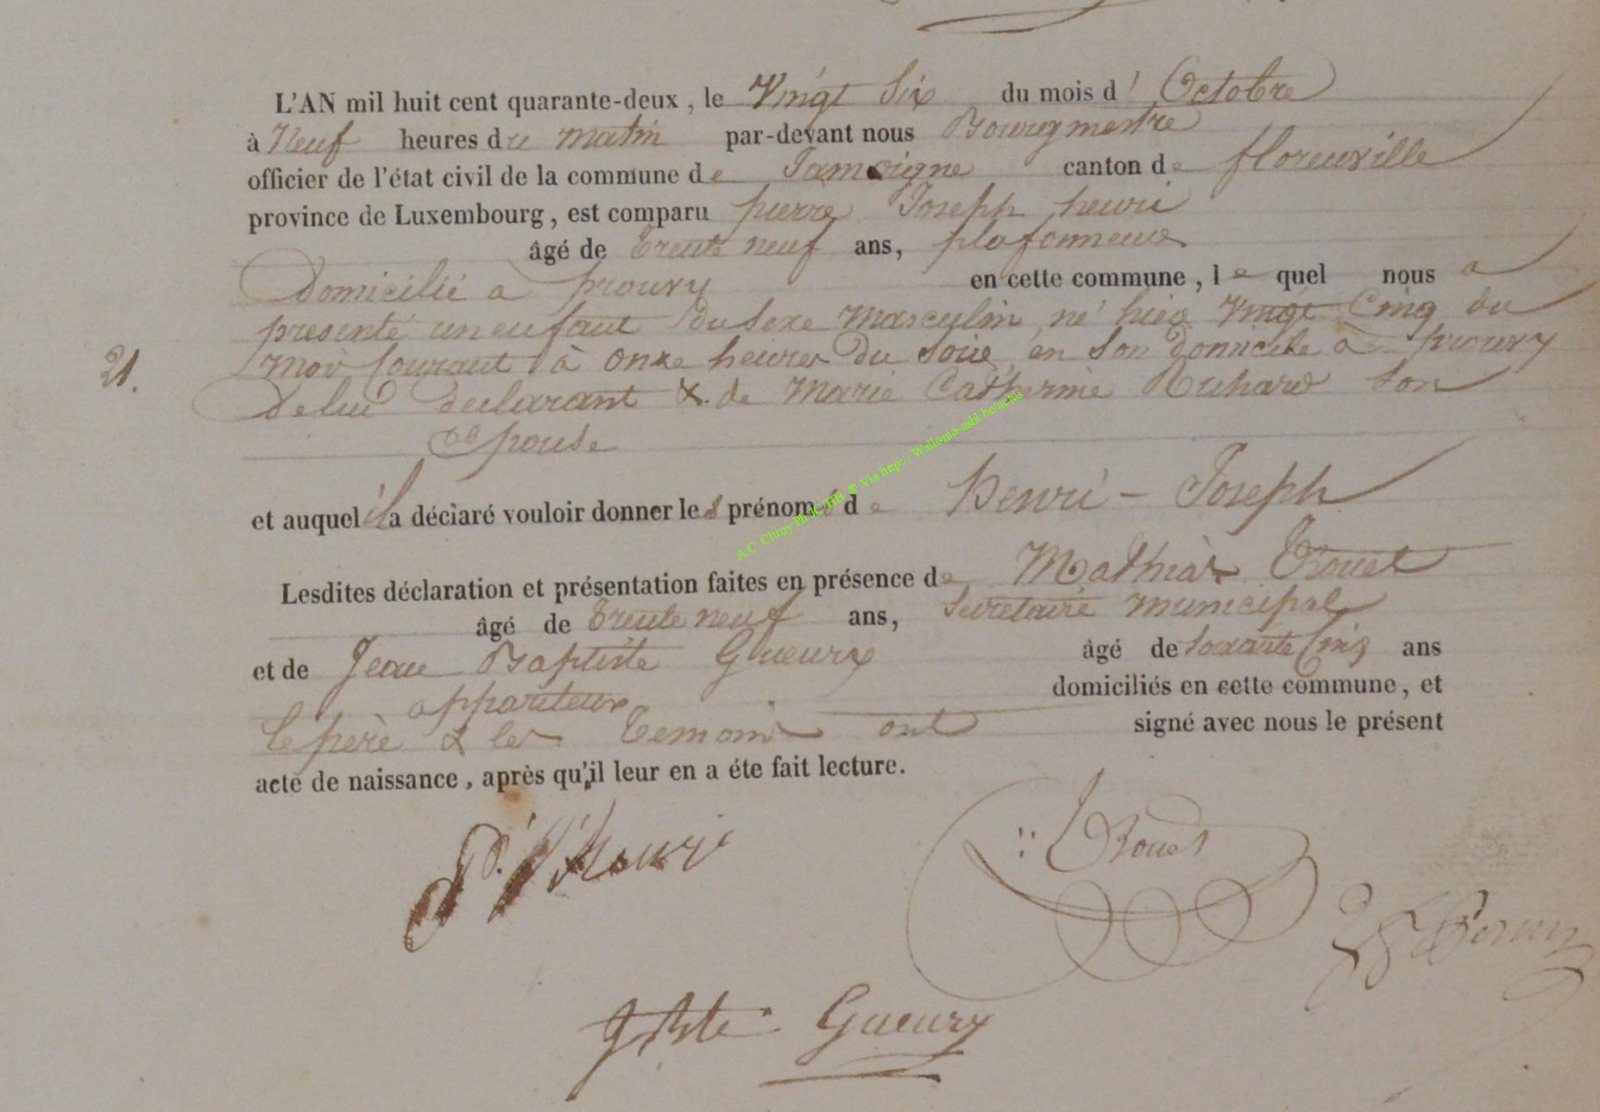 L'AN mil huit cent quarante-deux, le Vingt Six du mois d' Octobre
à Neuf heures du matin par-devant nous Bourgmestre
officier de l'état civil de la commune de Jamoigne canton de florenville
province de Luxembourg, est comparu pierre Joseph henri
âgé de trente neuf ans, plafonneur
Domicilié a prouvy en cette commune, le quel nous a
presenté un enfant du sexe Masculin né hier Vingt Cinq du
Mois Courant à onze heures Du soir en son domicile a prouvy
De lui declarant & de Marie Catherine Richard Son
Epouse
21.
et auquel il a déclaré vouloir donner les prénoms de Henri - Joseph
Lesdites déclaration et présentation faites en présence de Mathias Trouet
âgé de trente neuf ans, Secretaire municipal
et de Jean Baptiste Gueury âgé de soixante Cinq ans
appariteur domiciliés en cette commune, et
le père & les temoins ont signé avec nous le présent
acte de naissance, après qu'il leur en a éte fait lecture.
P. J. Henri
Trouet
J Bte Gueury